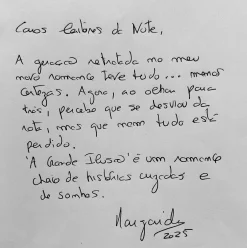 Caros leitores da Note,
A geração retratada no meu
novo romance teve tudo... menos
certezas. Agora, ao olhar para
trás, percebo que se desviou da
rota, mas que nem tudo está
perdido.
'A Grande Ilusão' é um romance
cheio de histórias cruzadas e
de sonhos.
Margarida
2025